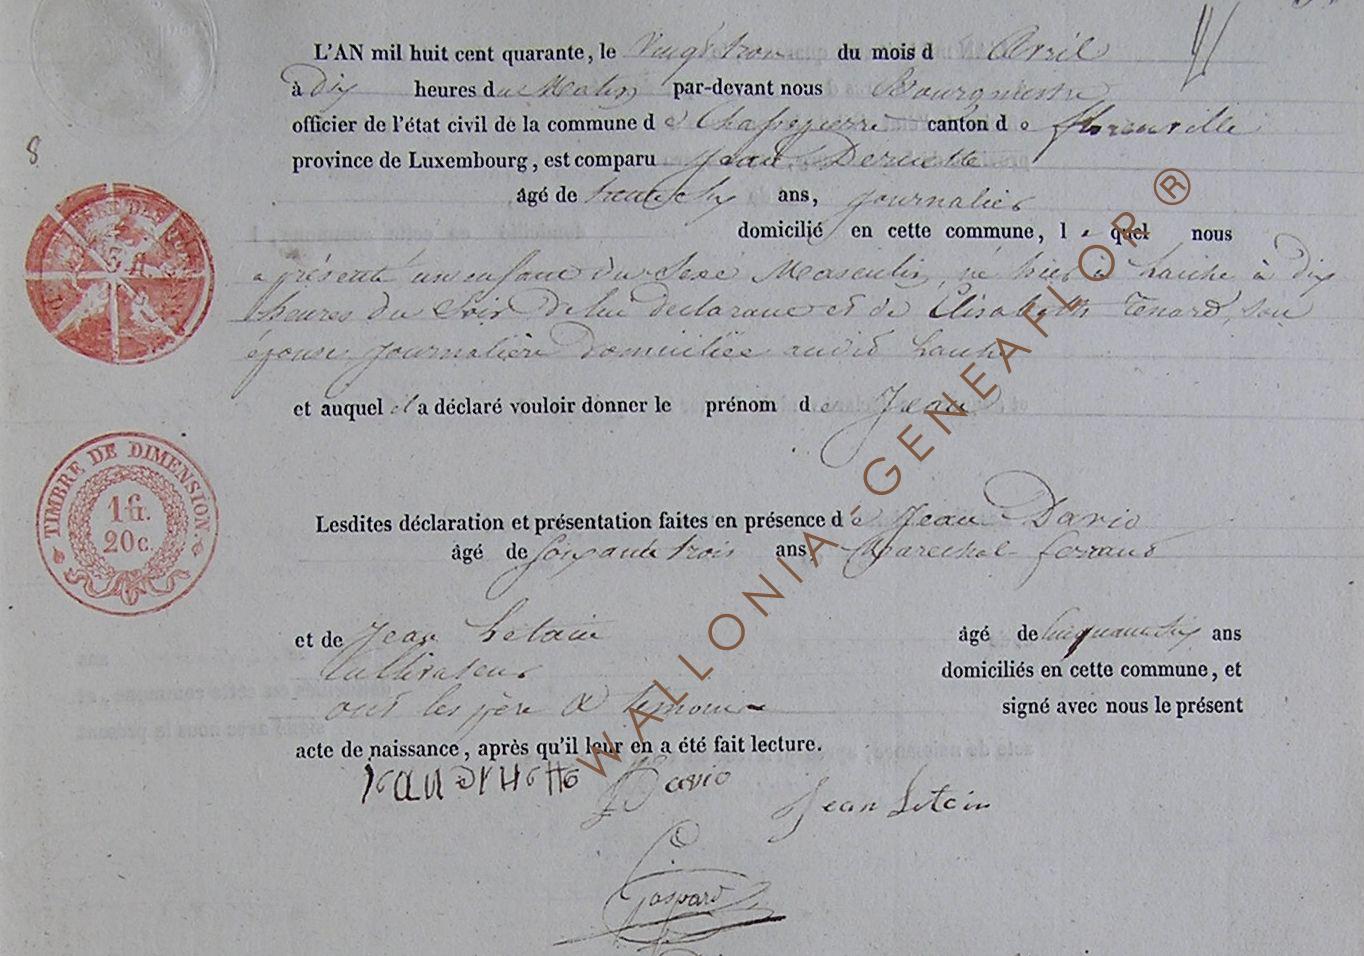 L'AN mil huit cent quarante, le Vingt trois du mois d Avril
à dix heures du Matin par-devant nous Bourgmestre
officier de l'état civil de la commune de Chassepierre canton de florenville
province de Luxembourg, est comparu Jean Deruette
âgé de trente six ans, journalier
domicilié en cette commune, le quel nous
a présenté un enfant du Sexe Masculin, né hier à Laiche à dix
heures du Soir de lui declarant et de Elisabeth Tenard, son
épouse journalière domiciliée audit Laiche
et auquel il a déclaré vouloir donner le prénom de Jean
Lesdites déclaration et présentation faites en présence de Jean David
âgé de Soixante trois ans, Marechal ferrant
et de Jean Letain âgé de Cinquante six ans
Cultivateur domiciliés en cette commune, et
ont les père & temoins signé avec nous le présent
acte de naissance, après qu'il leur en a été fait lecture.
David
Jean Letain
Gaspard
8
TIMBRE DE DIMENSION.
1 fr.
20 c.
WALLONIA-GENEAFLOR ®